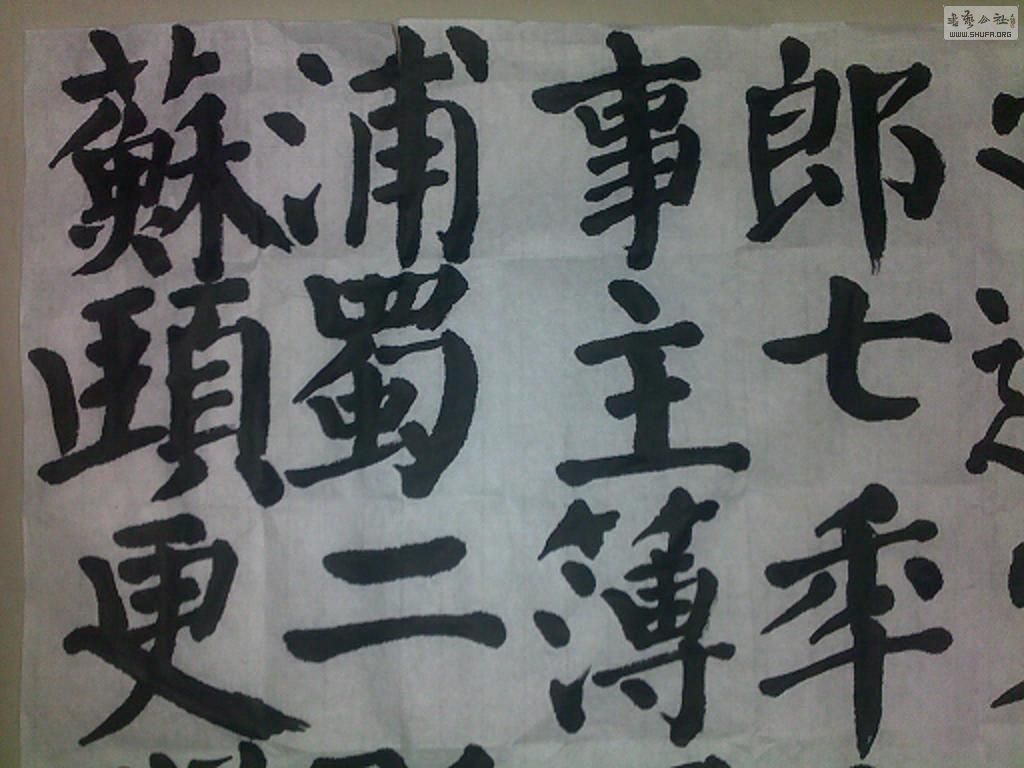 郎七年
事主簿
浦蜀二
蘇頲更
書藝公社
WWW.SHUFA.ORG